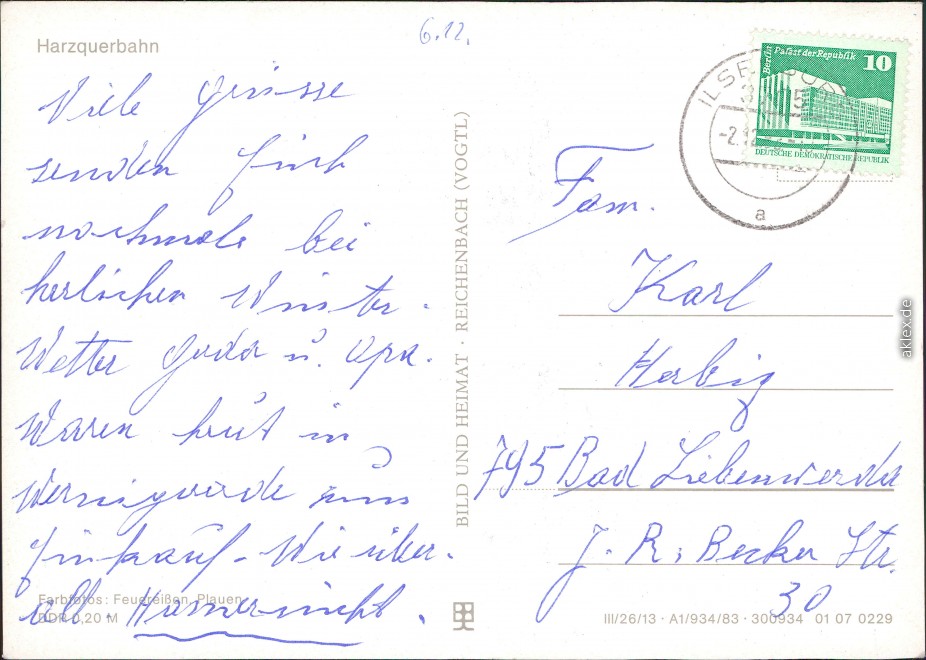 Harzquerbahn
6.12.
Viele Grüsse
senden Euch
nochmals bei
herlichen Winter-
Wetter Gerda u. Opa.
Waren heut in
Wernigerode zum
Einkauf. Wie über-
all
Farbfotos: Feuereißen, Plauen
DDR 0,20 M
BILD UND HEIMAT · REICHENBACH (VOGTL)
Berlin
Palast der Republik
10
DEUTSCHE DEMOKRATISCHE REPUBLIK
-2.12
a
Fam.
Karl
Herbig
795 Bad Liebenwerda
J. R. Becker Str.
30
III/26/13 · A1/934/83 · 300934 01 07 0229
aklex.de